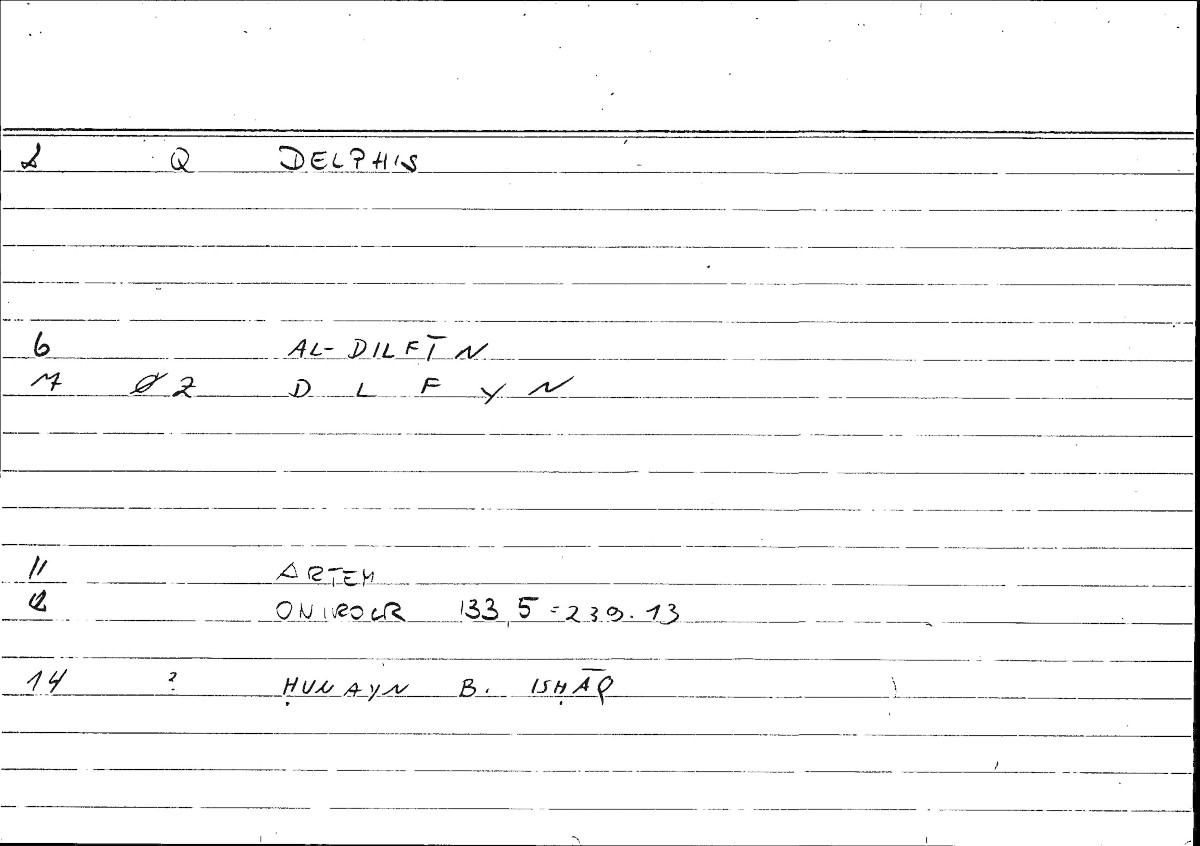 Q DELPHIS
6 AL-DILFĪN
Ø2 D L F Y N
11 ARTEM
12 ONIROCR 133,5=239.13
14 ? ḤUNAYN B. ISḤĀQ